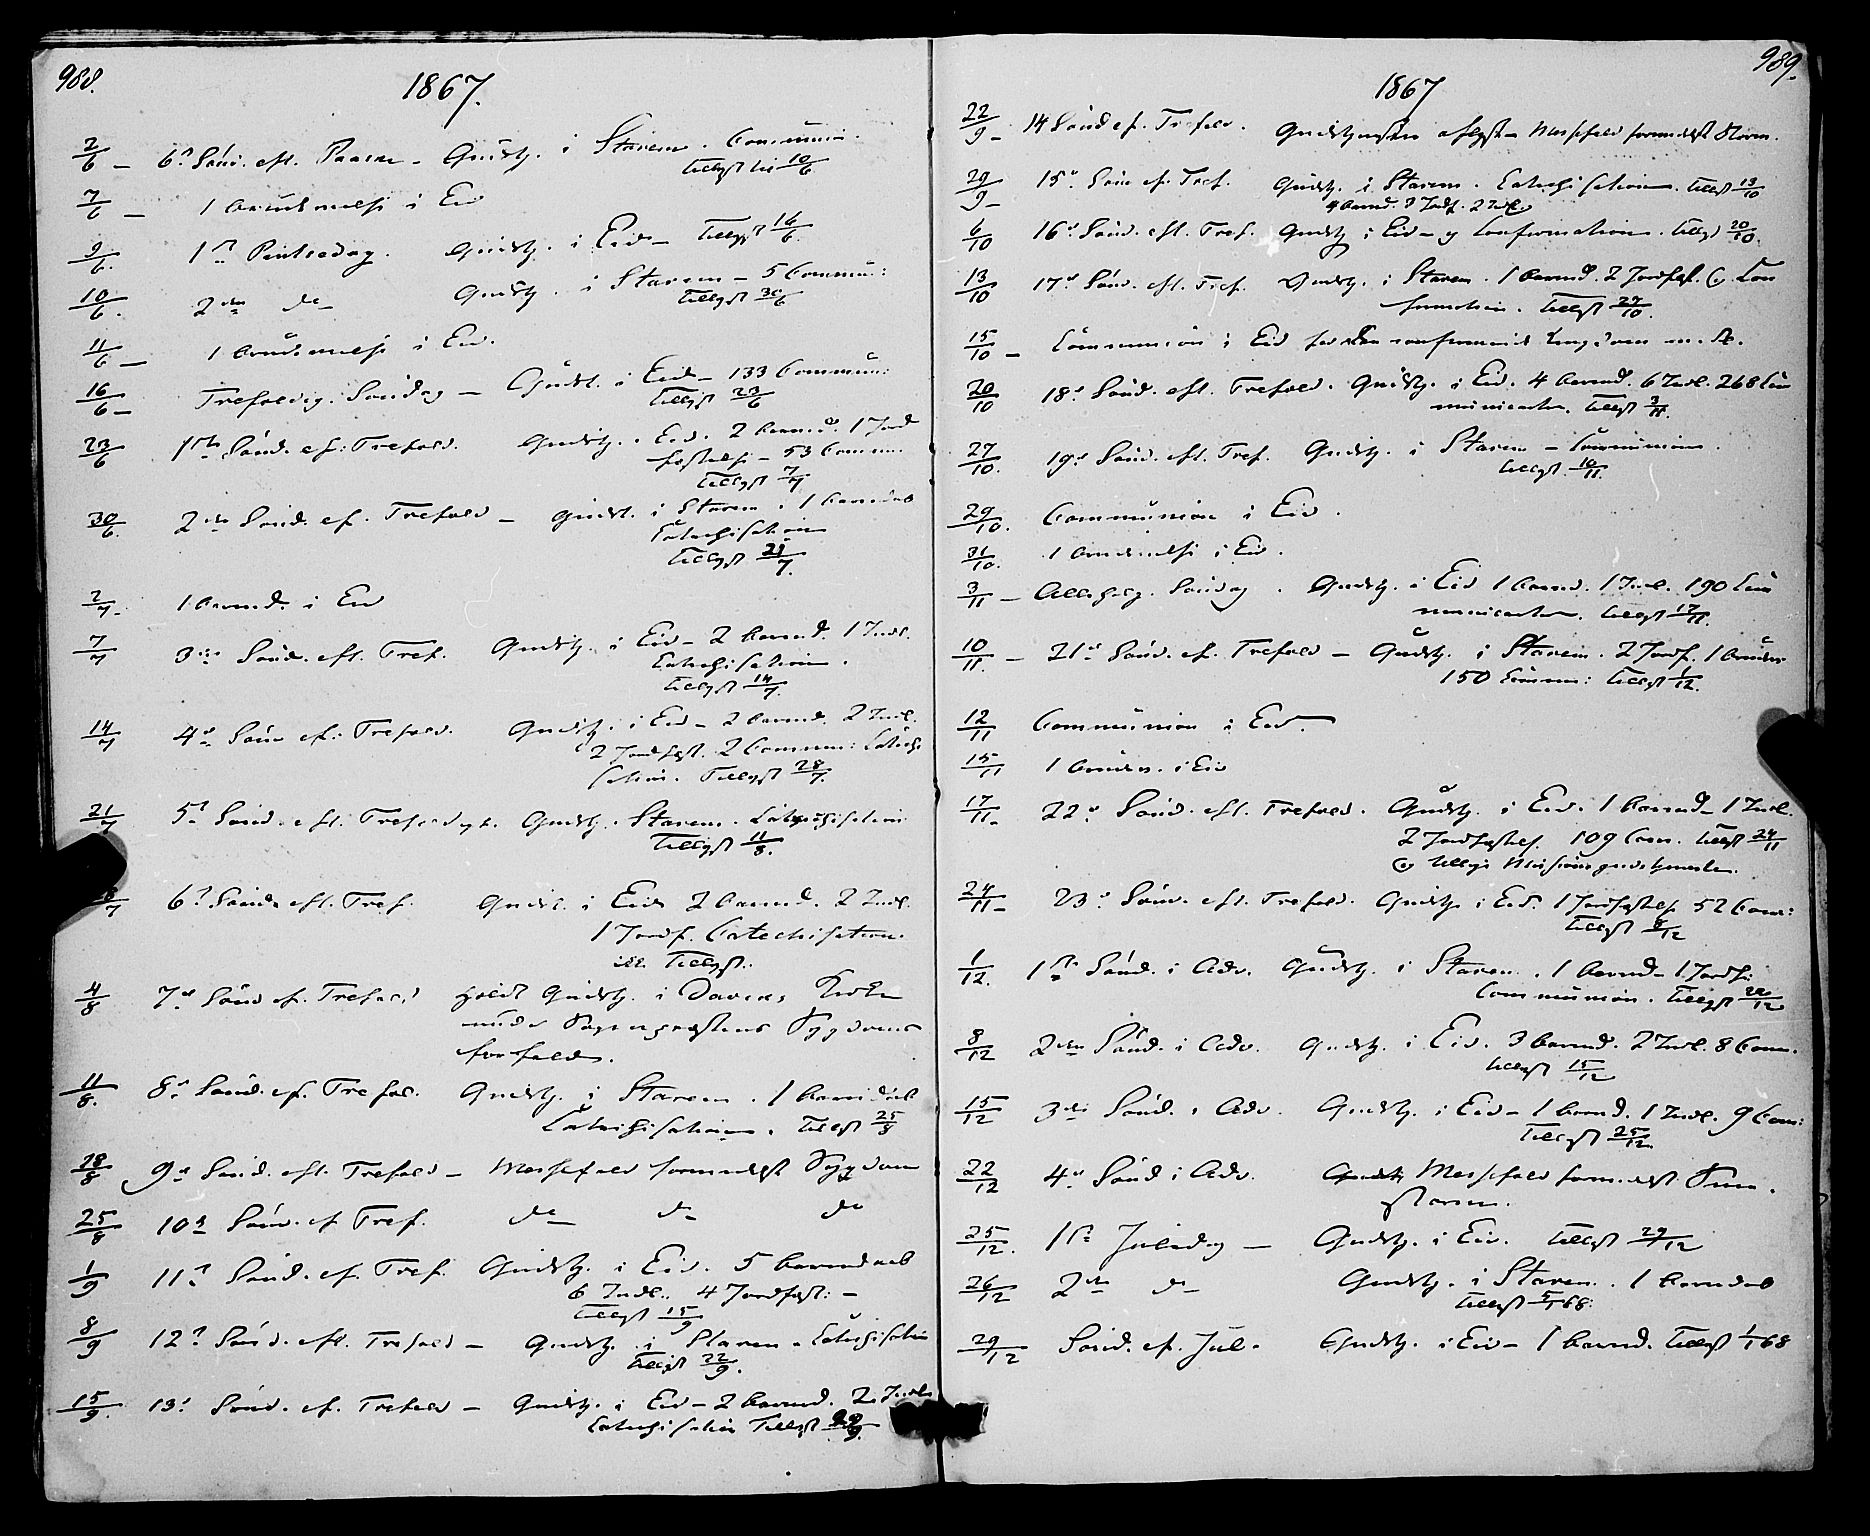 988.
1867.
2/6 – 6te Sönd. eft. Paaske – Gudstj. i Starem. Communion.
Tillyst til 10/6
7/6 – 1 i Eid
9/6. 1ste Pintsedag. Gudstj. i Eid – Tillyst 16/6.
10/6. 2den do – Gudstj. i Starem – 5 Commun:
Tillyst 30/6
11/6 – 1 i Eid.
16/6 – Trefoldig. Söndag – Gudst. i Eid – 133 Commun:
Tillyst 23/6
23/6 1ste Sönd. ef: Trefold. Gudstj. i Eid. 2 Barned. 1 Jord
fæstelse – 53 Commun.
Tillyst 7/7
30/6. 2den Sönd. ef. Trefold – Gudst. i Starem. 1 Barnedaab
Catechisation
Tillyst 21/7.
2/7. 1 Barned. i Eid
7/7 3die Sönd. eft. Tref. Gudstj. i Eid – 2 Barned. 1 Indl.
Catechisation.
Tillyst 14/7.
14/7 4de Sönd. ef: Trefold. Gudstj. i Eid – 2 Barned. 2 Indl.
2 Jordfæst. 2 Commun: Catechi
sation. Tillyst 28/7.
21/7 5te Sönd. eft. Gudstj. Starem. Catechisation
Tillyst 11/8.
28/7 6te Sönd. eft. Tref. Gudst. i Eid 2 Barned. 2 Indl.
1 Jordf. Catechisation.
Tillyst.
4/8 7de Sönd. ef. Trefold holdt Gudstj. i Kirke
under Sogneprestens Sygdoms
forfald.
11/8. 8de Sönd. ef. Trefol. Gudstj. i Starem. 1 Barnedaab
Catechisation. Tillyst 25/8
18/8 9de Sönd. eft. Trefold – Messefald formedelst Sygdom
25/8 10de Sönd. ef Tref. do do do
1/9 11te Sönd. ef. Tref. Gudstj. i Eid. 5 Barnedaab
6 Indl. 4 Jordfæst: –
Tillyst 15/9
8/9 12te Sönd. eft. Trefold – Gudstj. i Starem. Catechisation
Tillyst 22/9.
15/9. 13de Sönd. ef. Trefold – Gudstj. i Eid – 2 Barned. 2 Indl.
Catechisation Tillyst
989.
1867
22/9 – 14 Sönd ef. Trefold. Gudstjenesten aflyst – Messefald formedelst Storm.
29/9 – 15de Sön ef. Tref. Gudstj. i Starem. Catechisation. Tillyst 13/10
4 Barned. 3 Jordf. 2 Indl.
6/10 16de Sönd. eft. Tref. Gudstj i Eid – og Confirmation. Tillyst 20/10.
13/10 17de Sönd. eft. Tref. Gudstj. i Starem. 1 Barned. 2 Jordfæst. Con
firmation. Tillyst 27/10.
15/10 – Communion i Eid for den confirmerede Ungdom m. fl.
20/10 18de Sönd. eft. Trefold. Gudstj. i Eid. 4 Barned. 6 Indl. 268 Com
municanter. Tillyst 3/11.
27/10. 19de Sönd. eft. Tref. Gudstj. i Starem – Communion.
Tillyst 10/11.
29/10. Communion i Eid.
31/10. 1 i Eid.
3/11 – Allehelg. Söndag. Gudstj. i Eid 1 Barned. 1 Indl. 190 Com
municanter. Tillyst 17/11.
10/11. – 21de Sönd. ef. Trefold – Gudstj. i Starem. 2 Jordf. 1 Brudev
150 Commun: Tillyst 1/12.
12/11 Communion i Eid.
15/11 1 Brudev. i Eid
17/11. 22de Sönd. eft. Trefold. Gudstj. i Eid. 1 Barned – 1 Indl.
2 Jordfæstels. 109 Com. Tillyst 24/11
og tillige Missionsgudstjeneste.
24/11 – 23de Sönd. eft. Trefold. Gudstj. i Eid. 1 Jordfæstels 52 Com:
Tillyst 8/12
1/12. 1ste Sönd. i Adv. Gudstj. i Starem. 1 Barned – 1 Jordf:
Communion. Tillyst 22/12
8/12 2den Sönd. i Adv. Gudstj. i Eid. 3 Barned. 2 Indl. 8 Com.
Tillyst 15/12
15/12 3die Sönd. i Adv. Gudstj. i Eid – 1 Barned. 1 Indl. 9 Com:
Tillyst 25/12
22/12 4de Sönd i Adv. Gudstj Messefald formedelst Snee
storm.
25/12. 1ste Juledag – Gudstj. i Eid. Tillyst 29/12
26/12 2den do – Gudstj. i Starem. 1 Barnedaab
Tillyst 5/1 68.
29/12 Sönd. ef. Jul. Gudstj. i Eid – 1 Barned. Tillyst 1/1 68